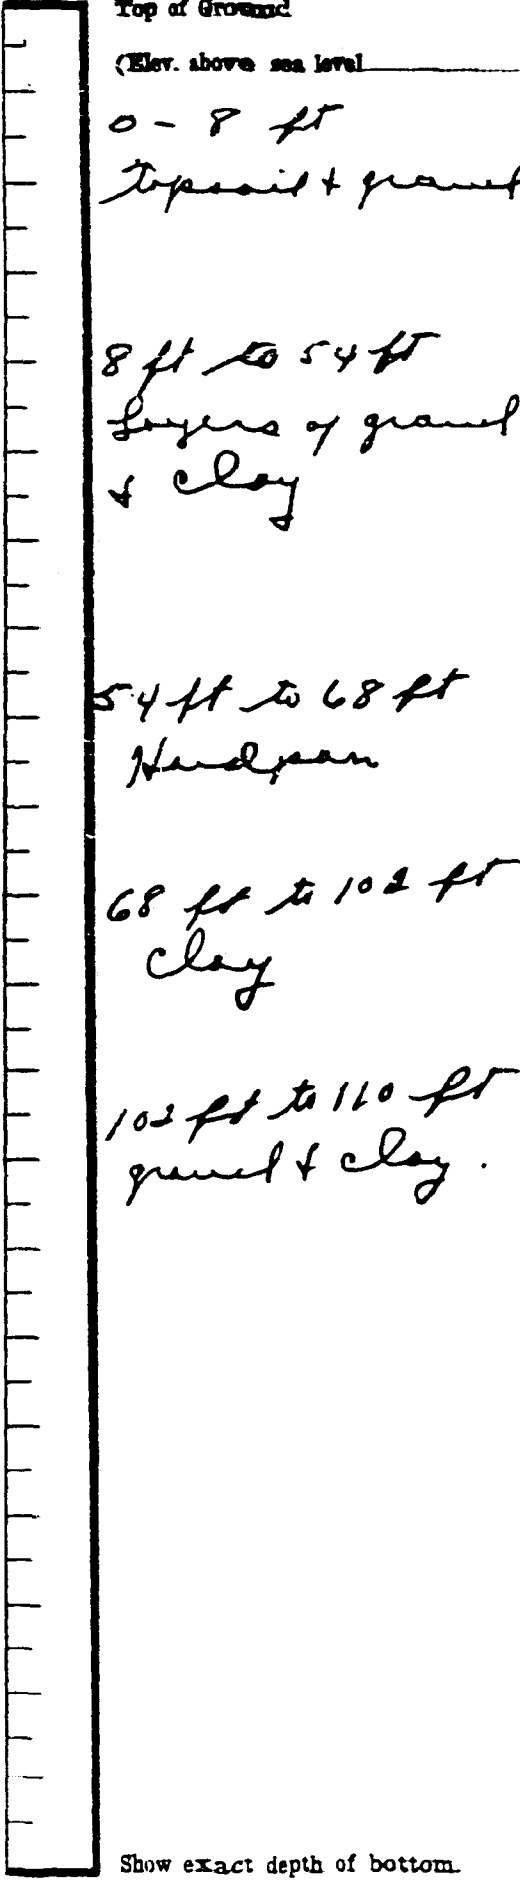 Top of Ground
(Elev. above sea level
0 - 8 ft
topsoil & gravel
8 ft to 54 ft
Layers of gravel
& clay
54 ft to 68 ft
Hardpan
68 ft to 102 ft
clay
102 ft to 110 ft
gravel & clay.
Show exact depth of bottom.